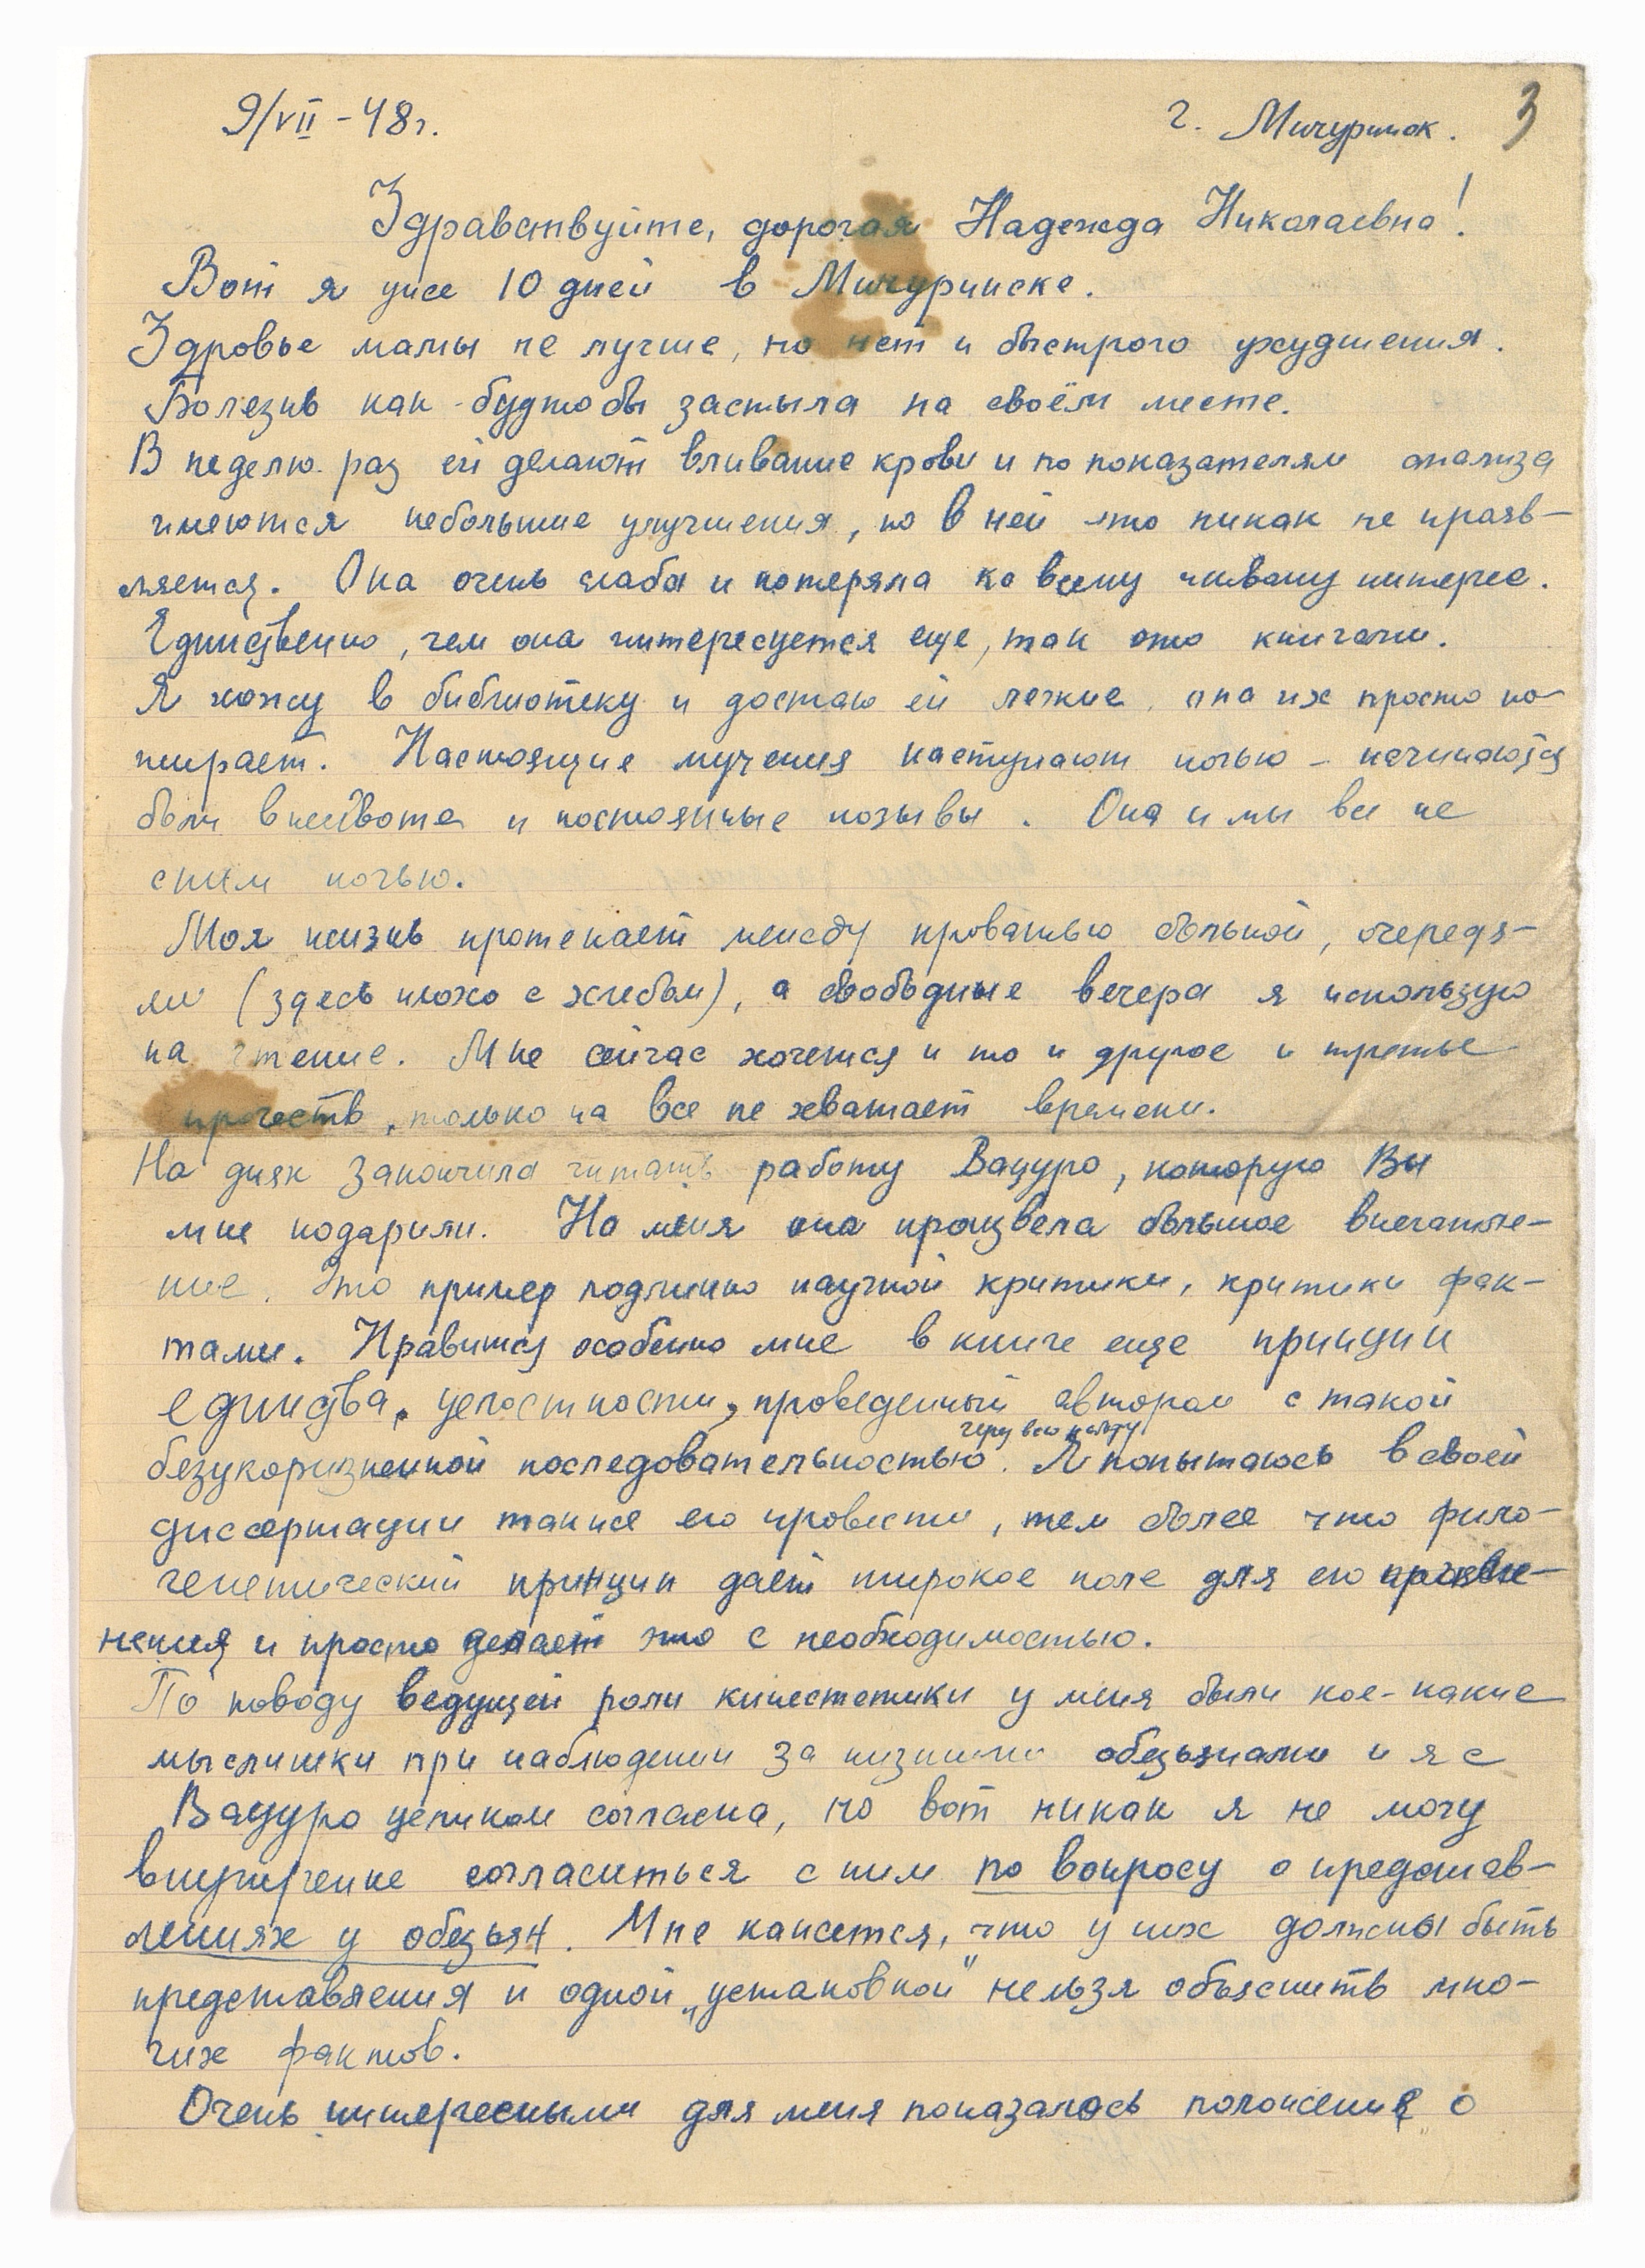 9/VII - 48 г.
г. Мичуринск. 3
Здравствуйте, дорогая Надежда Николаевна!
Вот я уже 10 дней в Мичуринске.
Здоровье мамы не лучше, но нет и быстрого ухудшения.
Болезнь как-будто бы застыла на своём месте.
В неделю раз ей делают вливание крови и по показателям анализа
имеются небольшие улучшения, но в ней это никак не прояв-
ляется. Она очень слаба и потеряла ко всему живому интерес.
Единственно, чем она интересуется еще, так это книгами.
Я хожу в библиотеку и достаю ей легкие, она их просто по-
жирает. Настоящие мучения наступают ночью - начинаются
боли в животе и постоянные позывы. Она и мы все не
спим ночью.
Моя жизнь протекает между кроватью больной, очередя-
ми (здесь плохо с хлебом), а свободные вечера я использую
на чтение. Мне сейчас хочется и то и другое и третье
прочесть, только на все не хватает времени.
На днях закончила читать работу Вацуро, которую Вы
мне подарили. На меня она произвела большое впечатле-
ние. Это пример подлинно научной критики, критики фак-
тами. Нравится особенно мне в книге еще принцип
единства, целостности, проведенный автором с такой
безукоризненной последовательностью через всю работу. Я попытаюсь в своей
диссертации также его провести, тем более что фило-
генетический принцип дает широкое поле для его
нения и просто делает это с необходимостью.
По поводу ведущей роли кинестетики у меня были кое-какие
мыслишки при наблюдении за низшими обезьянами и я с
Вацуро целиком согласна, но вот никак я не могу
внутренне согласиться с ним по вопросу о представ-
лениях у обезьян. Мне кажется, что у них должны быть
представления и одной „установкой" нельзя объяснить мно-
гих фактов.
Очень интересными для меня показалось положение о